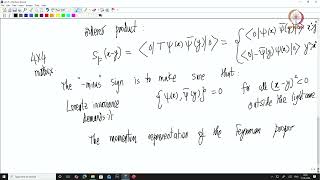 ordered product:
S_F(x-y) = <0|T ψ(x) ψ̄(y)|0> = { <0|ψ(x) ψ̄(y)|0> x⁰>y⁰
<0|-ψ̄(y)ψ(x)|0> y⁰>x⁰
4x4
matrix
The "-minus" sign is to make sure that:
Lorentz invariance
demands it
{ψ(x), ψ̄(y)} = 0 for all (x-y)²<0
outside the light cone
The momentum representation of the Feynman propor